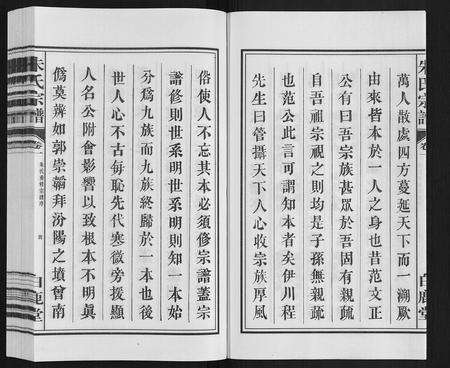 萬人散處四方蔓延天下而一溯厥
由來皆本於一人之身也昔范文正
公有曰吾宗族甚眾於吾固有親疏
自吾祖宗視之則均是子孫無親疏
也范公此言可謂知本者矣伊川程
先生曰管攝天下人心收宗族厚風
俗使人不忘其本必須修宗譜蓋宗
譜修則世系明世系明則知一本始
分為九族而九族終歸於一本也後
世人心不古每恥先代寒微旁援顯
人名公附會影響以致根本不明眞
僞莫辨如郭崇韜拜汾陽之墳曾南
朱氏宗譜
卷
白鹿堂
朱氏宗譜
卷
白鹿堂